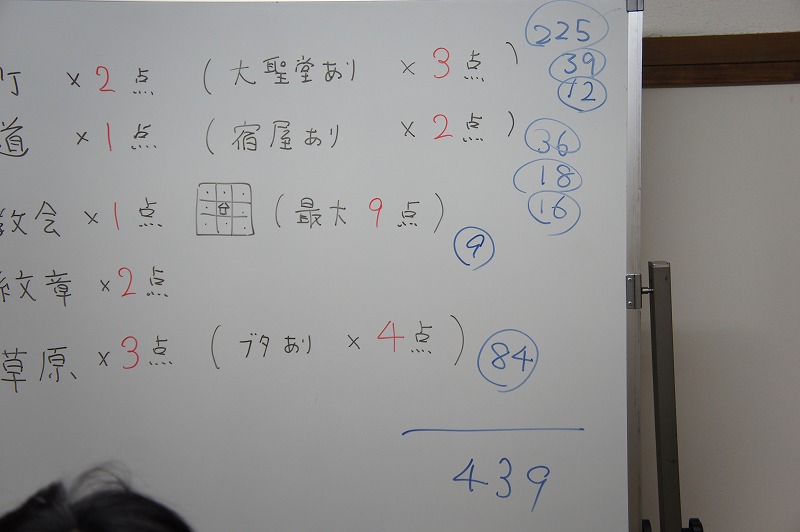 町 × 2 点 ( 大聖堂あり × 3 点 ) 225
39
12
道 × 1 点 ( 宿屋あり × 2 点 ) 36
18
16
教会 × 1 点 ( 最大 9 点 )
9
紋章 × 2 点
草原 × 3 点 ( ブタあり × 4 点 ) 84
439